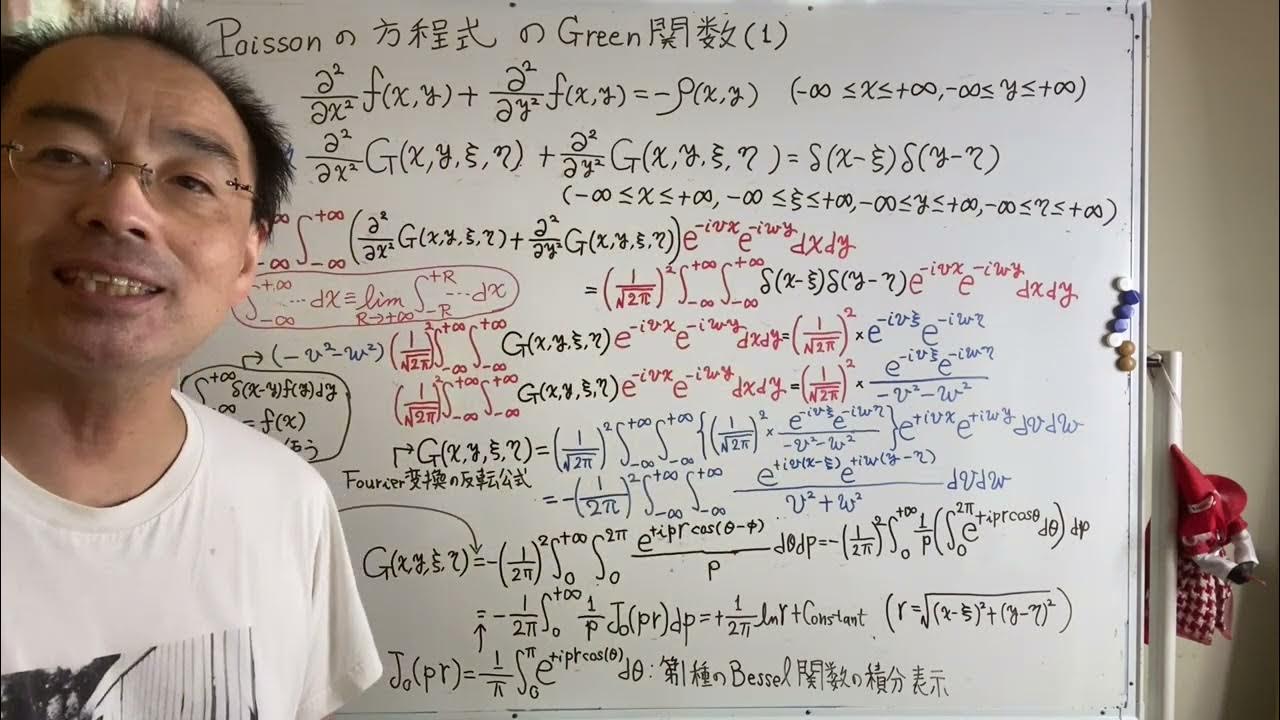 Poissonの方程式のGreen関数(1)
∂²/∂x² f(x,y) + ∂²/∂y² f(x,y) = -ρ(x,y) (-∞ ≤ x ≤ +∞, -∞ ≤ y ≤ +∞)
∂²/∂x² G(x,y,ξ,η) + ∂²/∂y² G(x,y,ξ,η) = δ(x-ξ)δ(y-η)
(-∞ ≤ x ≤ +∞, -∞ ≤ ξ ≤ +∞, -∞ ≤ y ≤ +∞, -∞ ≤ η ≤ +∞)
∫_{-∞}^{+∞} (∂²/∂x² G(x,y,ξ,η) + ∂²/∂y² G(x,y,ξ,η)) e^{-ivx} e^{-iwy} dxdy
= (1/√2π)² ∫_{-∞}^{+∞} ∫_{-∞}^{+∞} δ(x-ξ)δ(y-η) e^{-ivx} e^{-iwy} dxdy
∫_{-∞}^{+∞} ⋯ dx ≡ lim_{R→+∞} ∫_{-R}^{+R} ⋯ dx
→ (-v²-w²) (1/√2π)² ∫_{-∞}^{+∞} ∫_{-∞}^{+∞} G(x,y,ξ,η) e^{-ivx} e^{-iwy} dxdy = (1/√2π)² × e^{-ivξ} e^{-iwη}
∫_{-∞}^{+∞} δ(x-y)f(y)dy
= f(x)
(1/√2π)² ∫_{-∞}^{+∞} ∫_{-∞}^{+∞} G(x,y,ξ,η) e^{-ivx} e^{-iwy} dxdy = (1/√2π)² × e^{-ivξ} e^{-iwη} / (-v²-w²)
→ G(x,y,ξ,η) = (1/√2π)² ∫_{-∞}^{+∞} ∫_{-∞}^{+∞} {(1/√2π)² × e^{-ivξ} e^{-iwη} / (-v²-w²)} e^{+ivx} e^{+iwy} dvdw
Fourier変換の反転公式
= -(1/2π)² ∫_{-∞}^{+∞} ∫_{-∞}^{+∞} e^{+iv(x-ξ)} e^{+iw(y-η)} / (v²+w²) dvdw
G(x,y,ξ,η) = -(1/2π)² ∫_0^{+∞} ∫_0^{2π} e^{+ipr cos(θ-φ)} / p dθdp = -(1/2π)² ∫_0^{+∞} 1/p (∫_0^{2π} e^{+ipr cosθ} dθ) dp
= -1/2π ∫_0^{+∞} 1/p J₀(pr)dp = +1/2π lnr + Constant (r = √((x-ξ)²+(y-η)²))
J₀(pr) = 1/π ∫_0^π e^{+ipr cos(θ)} dθ : 第1種のBessel関数の積分表示